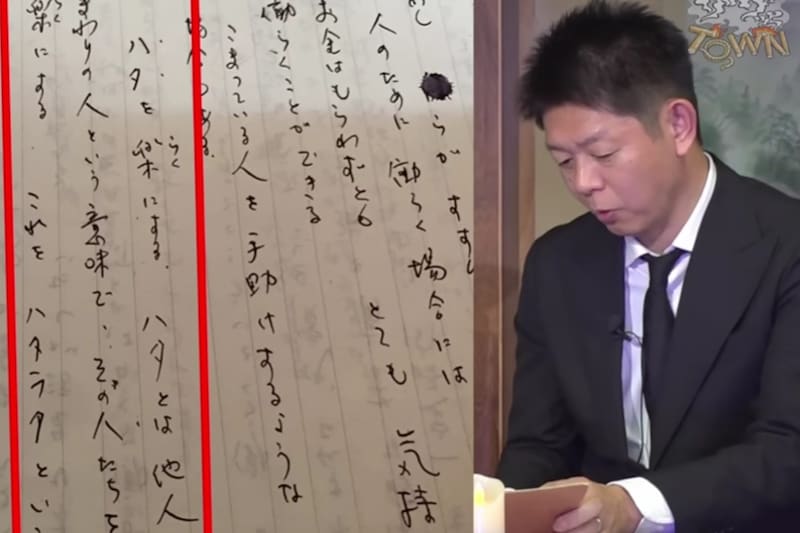 らがすす
人のために 働らく 場合には
お金はもらわずとも とても 気持
働らくことができる
こまっている人を手助けするような
場合もある.
ハタを楽にする. ハタとは他人
らく
まわりの人という意味で、その人たちを
楽にする. これを ハタラクとい
TOWN